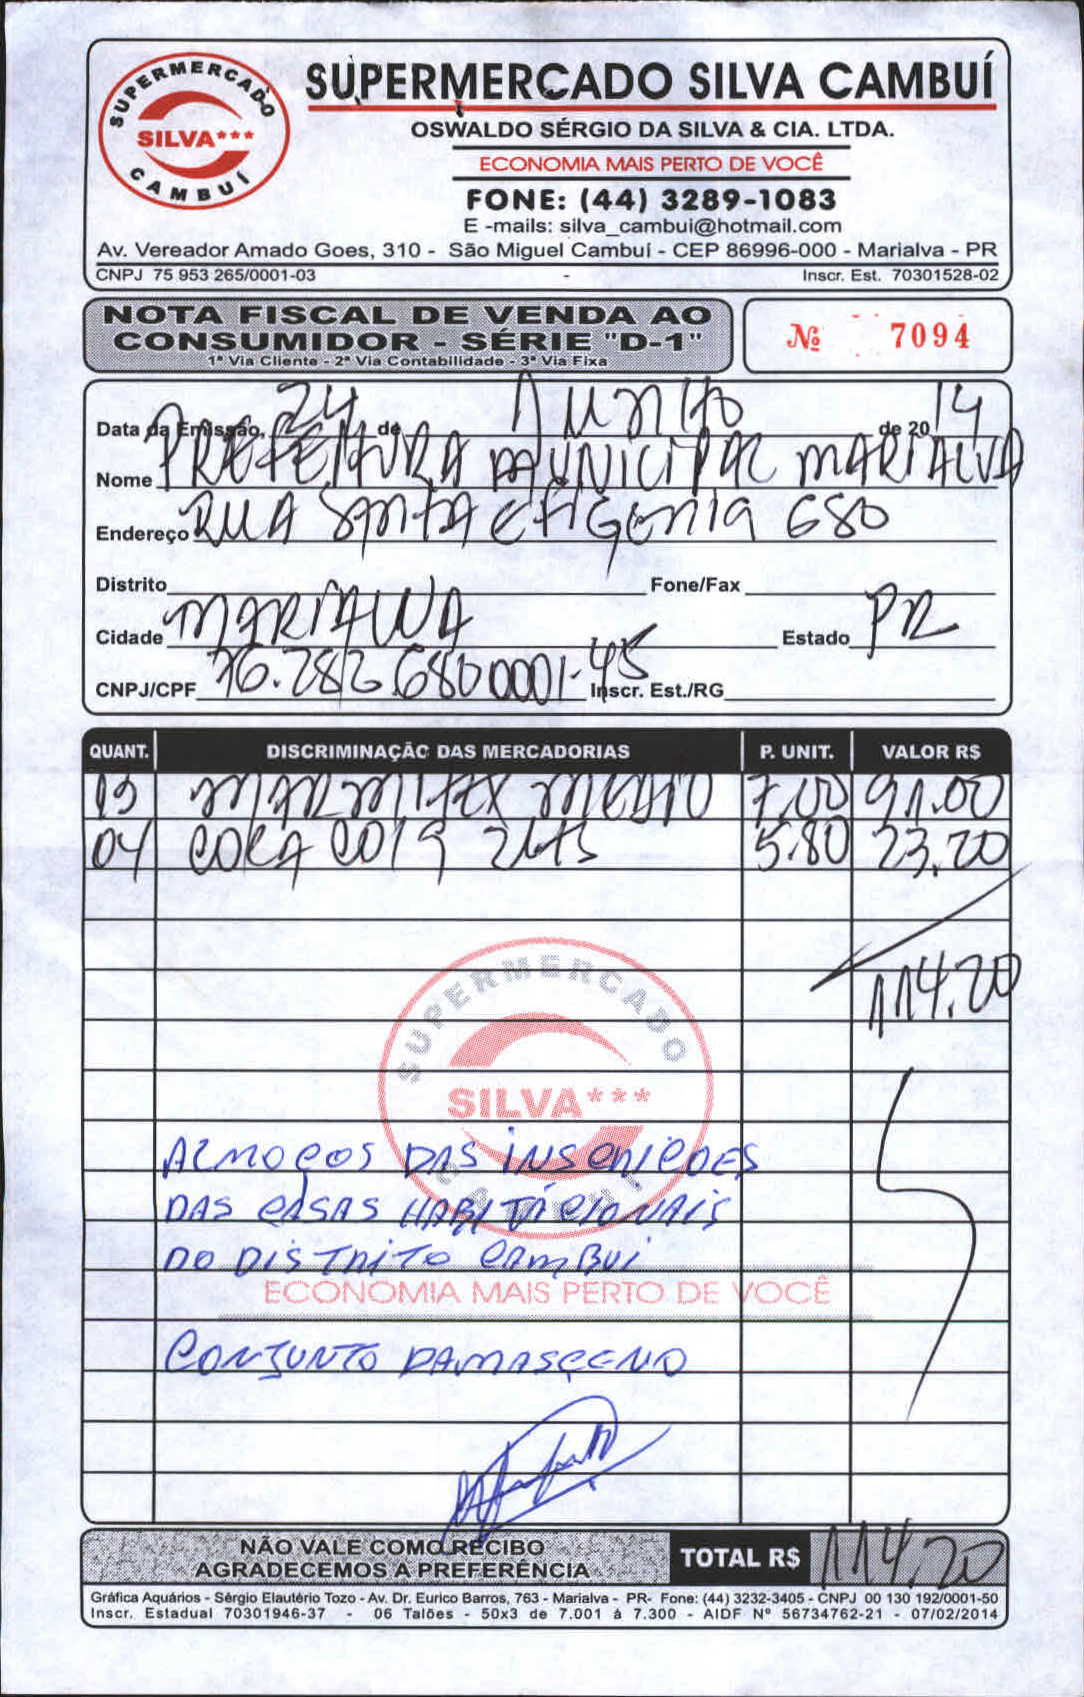 SUPERMERCADO SILVA*** CAMBUÍ
SUPERMERCADO SILVA CAMBUÍ
OSWALDO SÉRGIO DA SILVA & CIA. LTDA.
ECONOMIA MAIS PERTO DE VOCÊ
FONE: (44) 3289-1083
E -mails: silva_cambui@hotmail.com
Av. Vereador Amado Goes, 310 - São Miguel Cambuí - CEP 86996-000 - Marialva - PR
CNPJ 75 953 265/0001-03 - Inscr. Est. 70301528-02
NOTA FISCAL DE VENDA AO
CONSUMIDOR - SÉRIE "D-1"
1ª Via Cliente - 2ª Via Contabilidade - 3ª Via Fixa
Nº 7094
Data da Emissão, 24 de Junho de 20 14
Nome PREFEITURA MUNICIPAL MARIALVA
Endereço RUA SANTA EFIGENIA 680
Distrito Fone/Fax
Cidade MARIALVA Estado PR
CNPJ/CPF 76.282 680 0001-45 Inscr. Est./RG
QUANT. DISCRIMINAÇÃO DAS MERCADORIAS P. UNIT. VALOR R$
13 MARMITEX MEDIO 7,00 91.00
04 COCA COLA 2LTS 5.80 23.20
114.20
SUPERMERCADO SILVA*** CAMBUÍ
ALMOÇOS DAS INSCRIÇOES
DAS CASAS HABITACIONAIS
DO DISTRITO CAMBUI
ECONOMIA MAIS PERTO DE VOCÊ
CONJUNTO DAMASCENO
NÃO VALE COMO RECIBO
AGRADECEMOS A PREFERÊNCIA
TOTAL R$ 114.20
Gráfica Aquários - Sérgio Elautério Tozo - Av. Dr. Eurico Barros, 763 - Marialva - PR- Fone: (44) 3232-3405 - CNPJ 00 130 192/0001-50
Inscr. Estadual 70301946-37 - 06 Talões - 50x3 de 7.001 à 7.300 - AIDF Nº 56734762-21 - 07/02/2014